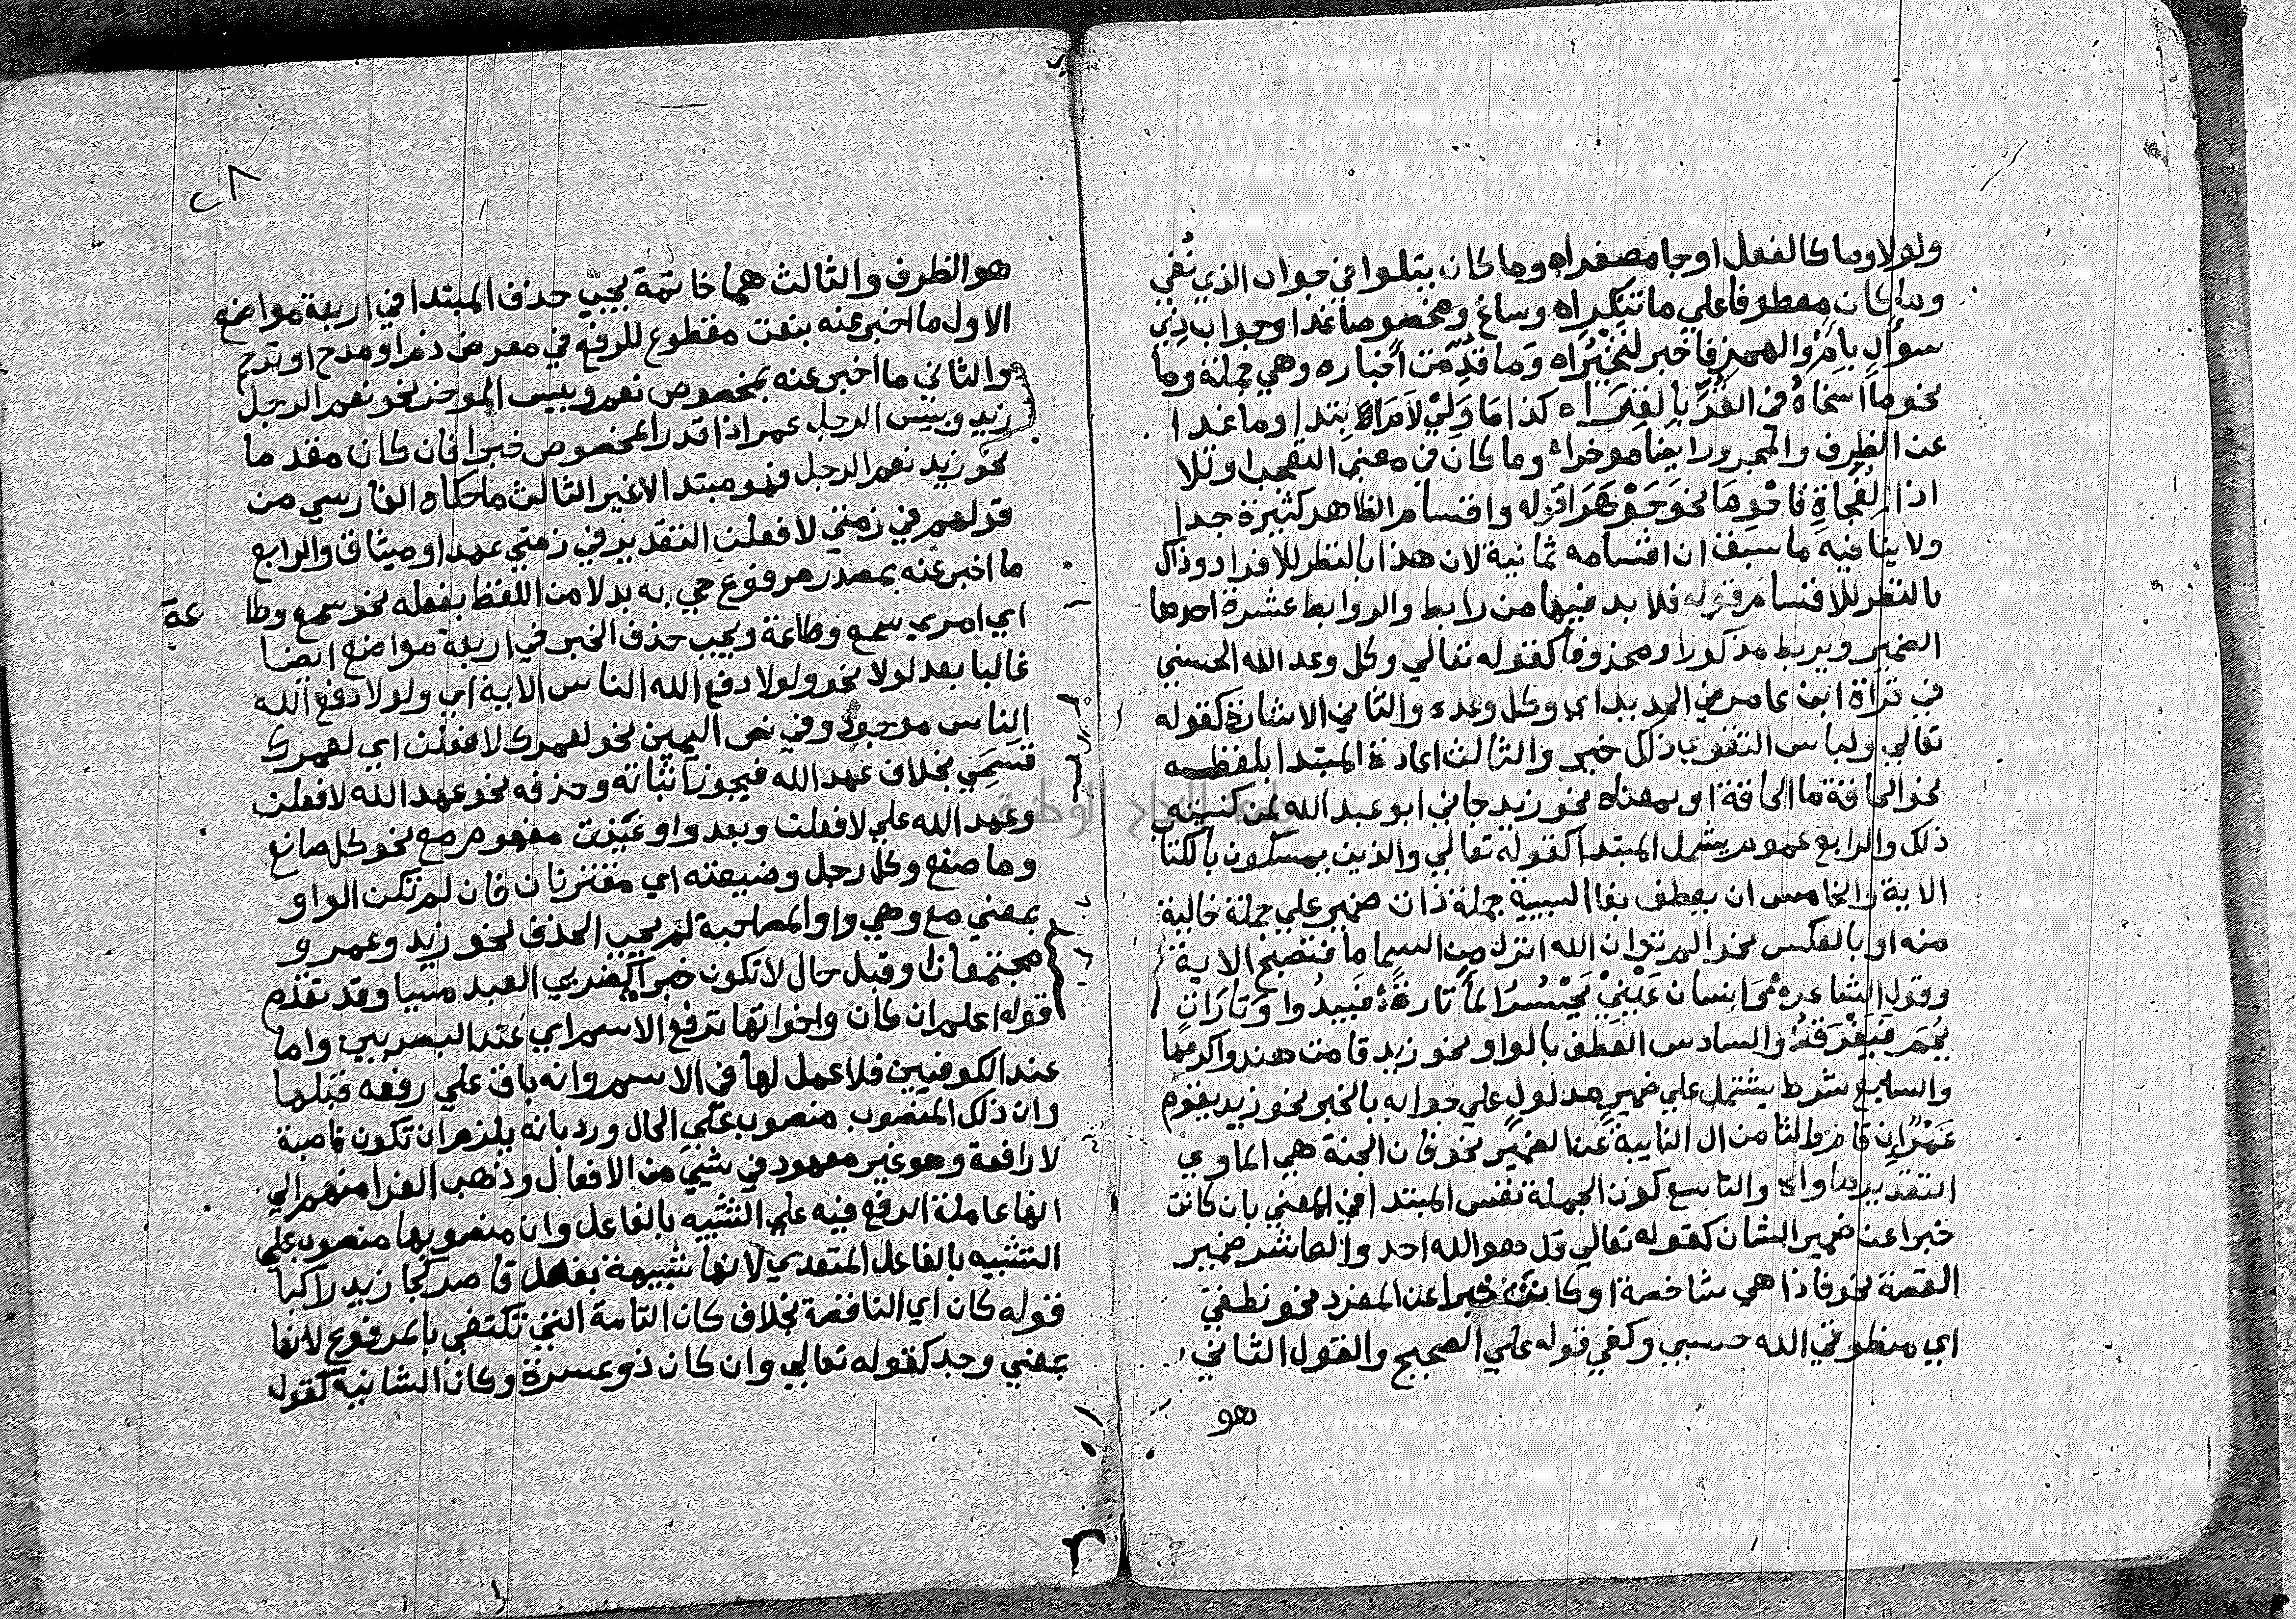 ولولا وما كالفعل او جا مصغراه وما كان يتلوا في جواب الذي نفي
وما كان معطوفا علي ما تنكراه وساغ ومخصوصا غدا وجواب ذي
سؤال بام والهمز فاخبر لتخبراه وما قدمت اخباره وهي جملة وما
نحو ما اسخاه في القر بالقراه كذا ما ولي لام ابتدا وما غدا
عن الظرف والمجرور ايضا موخراه وما كان في معني التعجب او تلا
اذا الفجاة فاحو ما نحو جوهرا قوله واقسام الظاهر كثيرة جدا
ولا ينافيه ما سبق ان اقسامه ثمانية لان هذا بالنظر للافراد وذاك
بالنظر للاقسام قوله فلا بد فيها من رابط والروابط عشرة احدها
الضمير ويربط مذكورا ومحذوفا كقوله تعالي وكل وعد الله الحسني
في قراة ابن عامر في الحديد اي وكل وعده والثاني الاشارة كقوله
تعالي ولباس التقوي ذلك خير والثالث اعادة المبتدا بلفظه
نحو الحاقة ما الحاقة او بمعناه نحو زيد جاني ابو عبد الله لمن كنيته
ذلك والرابع عموم يشمل المبتدا كقوله تعالي والذين يمسكون بالكتا
الاية والخامس ان يعطف بفا السببية جملة ذات ضمير علي جملة خالية
منه او بالعكس نحو الم تر ان الله انزل من السما ما فتصبح الاية
وقول الشاعر وانسان عيني يحسر الما تارة فيبدوا وتارات
يجم فيغرق والسادس العطف بالواو نحو زيد قامت هند واكرمها
والسابع شرط يشتمل علي ضمير مدلول علي جوابه بالخبر نحو زيد يقوم
عمرو ان قام والثامن ال النايبة عن الضمير نحو فان الجنة هي الماوي
التقدير ماواه والتاسع كون الجملة نفس المبتدا في المعني بان كانت
خبرا عن ضمير الشان كقوله تعالي قل هو الله احد والعاشر ضمير
القصة نحو فاذا هي شاخصة او كانت خبرا عن المفرد نحو نطقي
اي منطوقي الله حسبي وكفي قوله علي الصحيح والقول الثاني
هو
٢٨
هو الظرف والثالث هما خاتمة يجب حذف المبتدا في اربعة مواضع
الاول ما اخبر عنه بنعت مقطوع للرفع في معرض ذم او مدح او ترحم
والثاني ما اخبر عنه بمخصوص نعم وبيس الموخر نحو نعم الرجل
زيد وبيس الرجل عمر اذا قدر المخصوص خبرا فان كان مقدما
نحو زيد نعم الرجل فهو مبتدا لا غير الثالث ما حكاه الفارسي من
قولهم في زمتي لافعلن التقدير في زمتي عهد او ميثاق والرابع
ما اخبر عنه بمصدر مرفوع جي به بدلا من اللفظ بفعله نحو سمع وطا
عة
اي امري سمع وطاعة ويجب حذف الخبر في اربعة مواضع ايضا
غالبا بعد لولا نحو ولولا دفع الله الناس الاية اي ولولا دفع الله
الناس موجود وفي نص اليمين نحو لعمرك لافعلن اي لعمرك
قسمي بخلاف عهد الله فيجوز اثباته وحذفه نحو عهد الله لافعلن
وعهد الله علي لافعلن وبعد واو عينت مفهوم مع نحو كل صانع
وما صنع وكل رجل وضيعته اي مقترنان فان لم تكن الواو
بمعني مع وهي واو المصاحبة لم يجب الحذف نحو زيد وعمرو
مجتمعان او قبل حال لا تكون خبرا كضربي العبد مسيا وقد تقدم
قوله اعلم ان كان واخواتها ترفع الاسم اي عند البصريين واما
عند الكوفيين فلا عمل لها في الاسم وانه باق علي رفعه قبلها
وان ذلك المنصوب منصوب علي الحال ورد بانه يلزم ان تكون ناصبة
لا رافعة وهو غير معهود في شيي من الافعال وذهب الفرا منهم الي
انها عاملة الرفع فيه علي التشبيه بالفاعل وان منصوبها منصوب علي
التشبيه بالفاعل المتعدي لانها شبيهة بفعل قاصر كجا زيد راكبا
قوله كان اي الناقصة بخلاف كان التامة التي تكتفي بالمرفوع لانها
بمعني وجد كقوله تعالي وان كان ذو عسرة وكان الشانية كقول